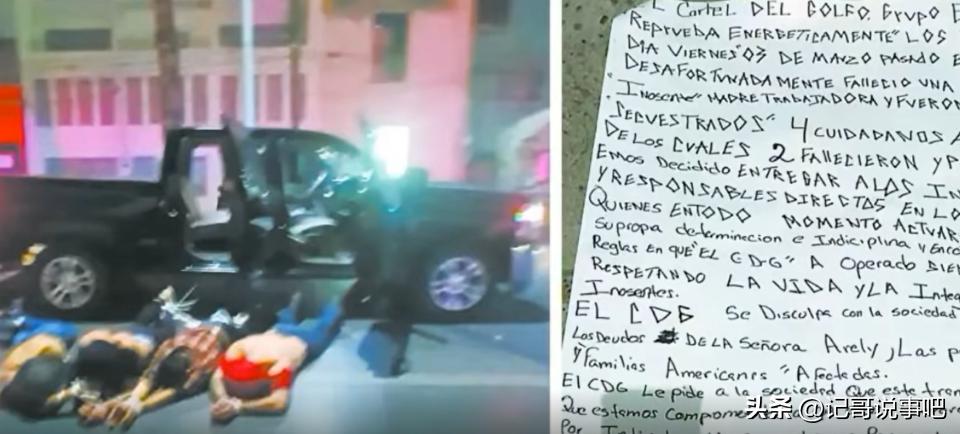 L CARTEL DEL GOLFO, GRUPO E
REPRUEBA ENERGETICAMENTE" LOS
DIA VIERNES" 03 DE MARZO PASADO E
DESAFORTUNADAMENTE FALLECIO UNA
"INOSENTE" MADRE TRABAJADORA Y FUERON
SECUESTRADOS" 4 CUIDADANOS A
DE LOS CUALES 2 FALLECIERON Y P
EMOS DECIDIDO ENTREGAR A LOS IN
Y RESPONSABLES DIRECTOS EN LO
QUIENES EN TODO MOMENTO ACTUAR
SU PROPA determinacion e Indiciplina y ENCO
Reglas EN QUE"EL CDG" A Operado SIEM
RESPETANDO LA VIDA Y LA Integ
Inosentes.
EL CDG Se Disculpa con la sociedad
Los Deudos DE LA Señora Arely, Las p
y"Familias Americanas" Afectadas.
El CDG Le pide a la sociedad Que este tran
Que estamos Comprome
头条 @记哥说事吧
Por